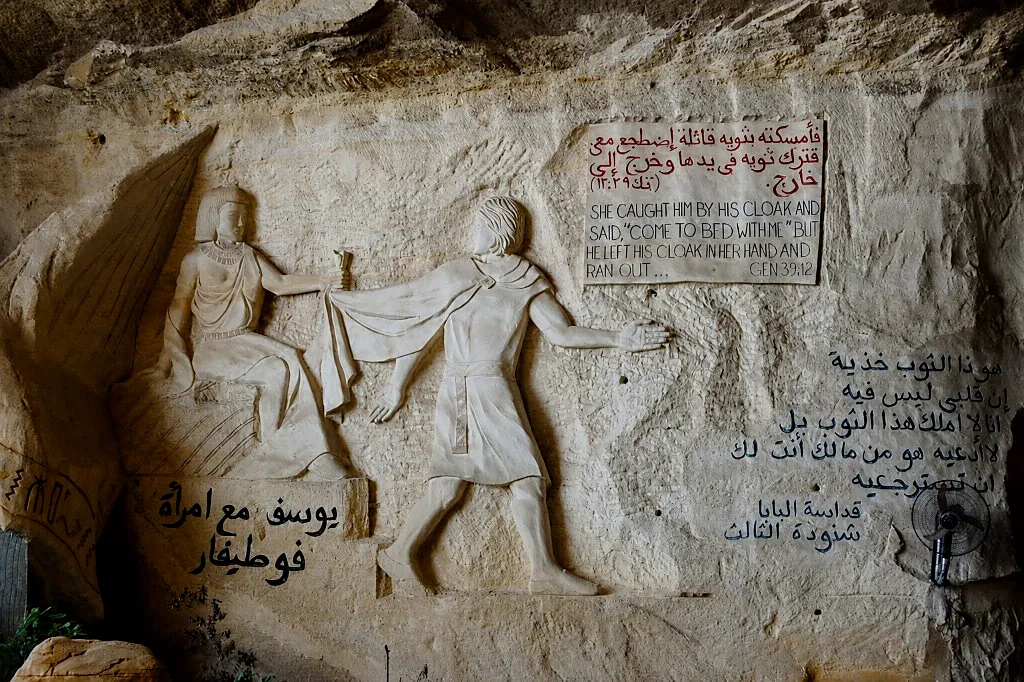 فأمسكته بثوبه قائلة إضطجع معى
فترك ثوبه فى يدها وخرج إلي
خارج. (تك ١٢:٣٩)
SHE CAUGHT HIM BY HIS CLOAK AND
SAID, "COME TO BED WITH ME" BUT
HE LEFT HIS CLOAK IN HER HAND AND
RAN OUT ... GEN 39,12
هوذا الثوب خذية
إن قلبى ليس فيه
انا لا املك هذا الثوب بل
لا ادعيه هو من مالك أنت لك
ان تسترجعيه
قداسة البابا
شنودة الثالث
يوسف مع امرأة
فوطيفار